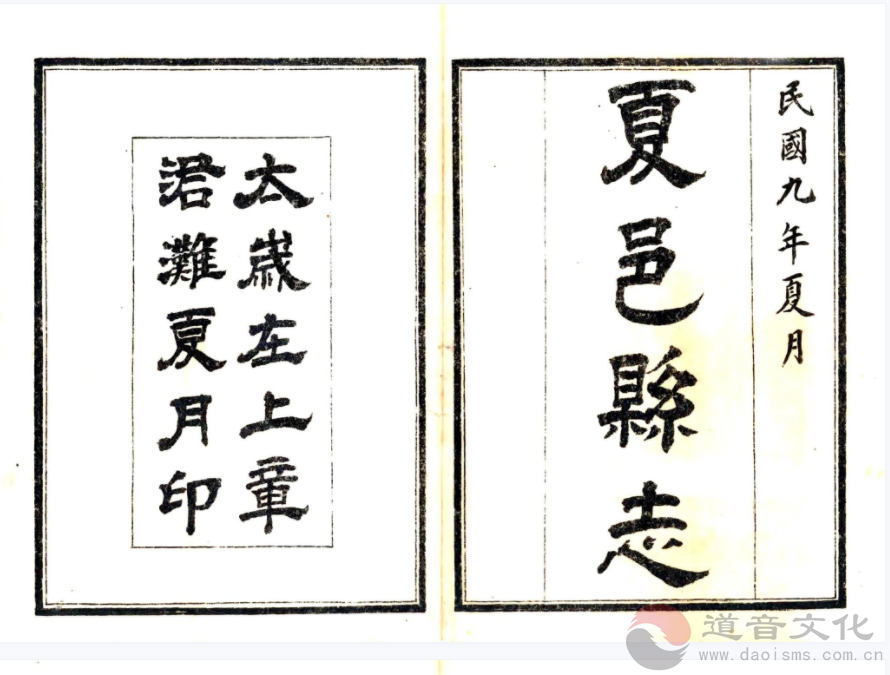 民國九年夏月
夏邑縣志
太歲在上章
涒灘夏月印
道音文化
www.daoisms.com.cn